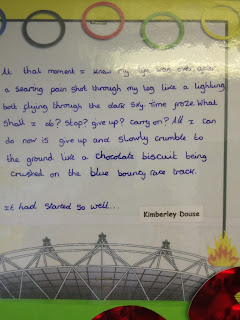 At that moment I knew my life was over, after
a searing pain shot through my leg like a lighting
bolt flying through the dark sky. Time froze. What
shall I do? Stop? give up? carry on? All I can
do now is give up and slowly crumble to
the ground like a chocolate biscuit being
crushed on the blue bouncy race track.
It had started so well...
Kimberley Douse